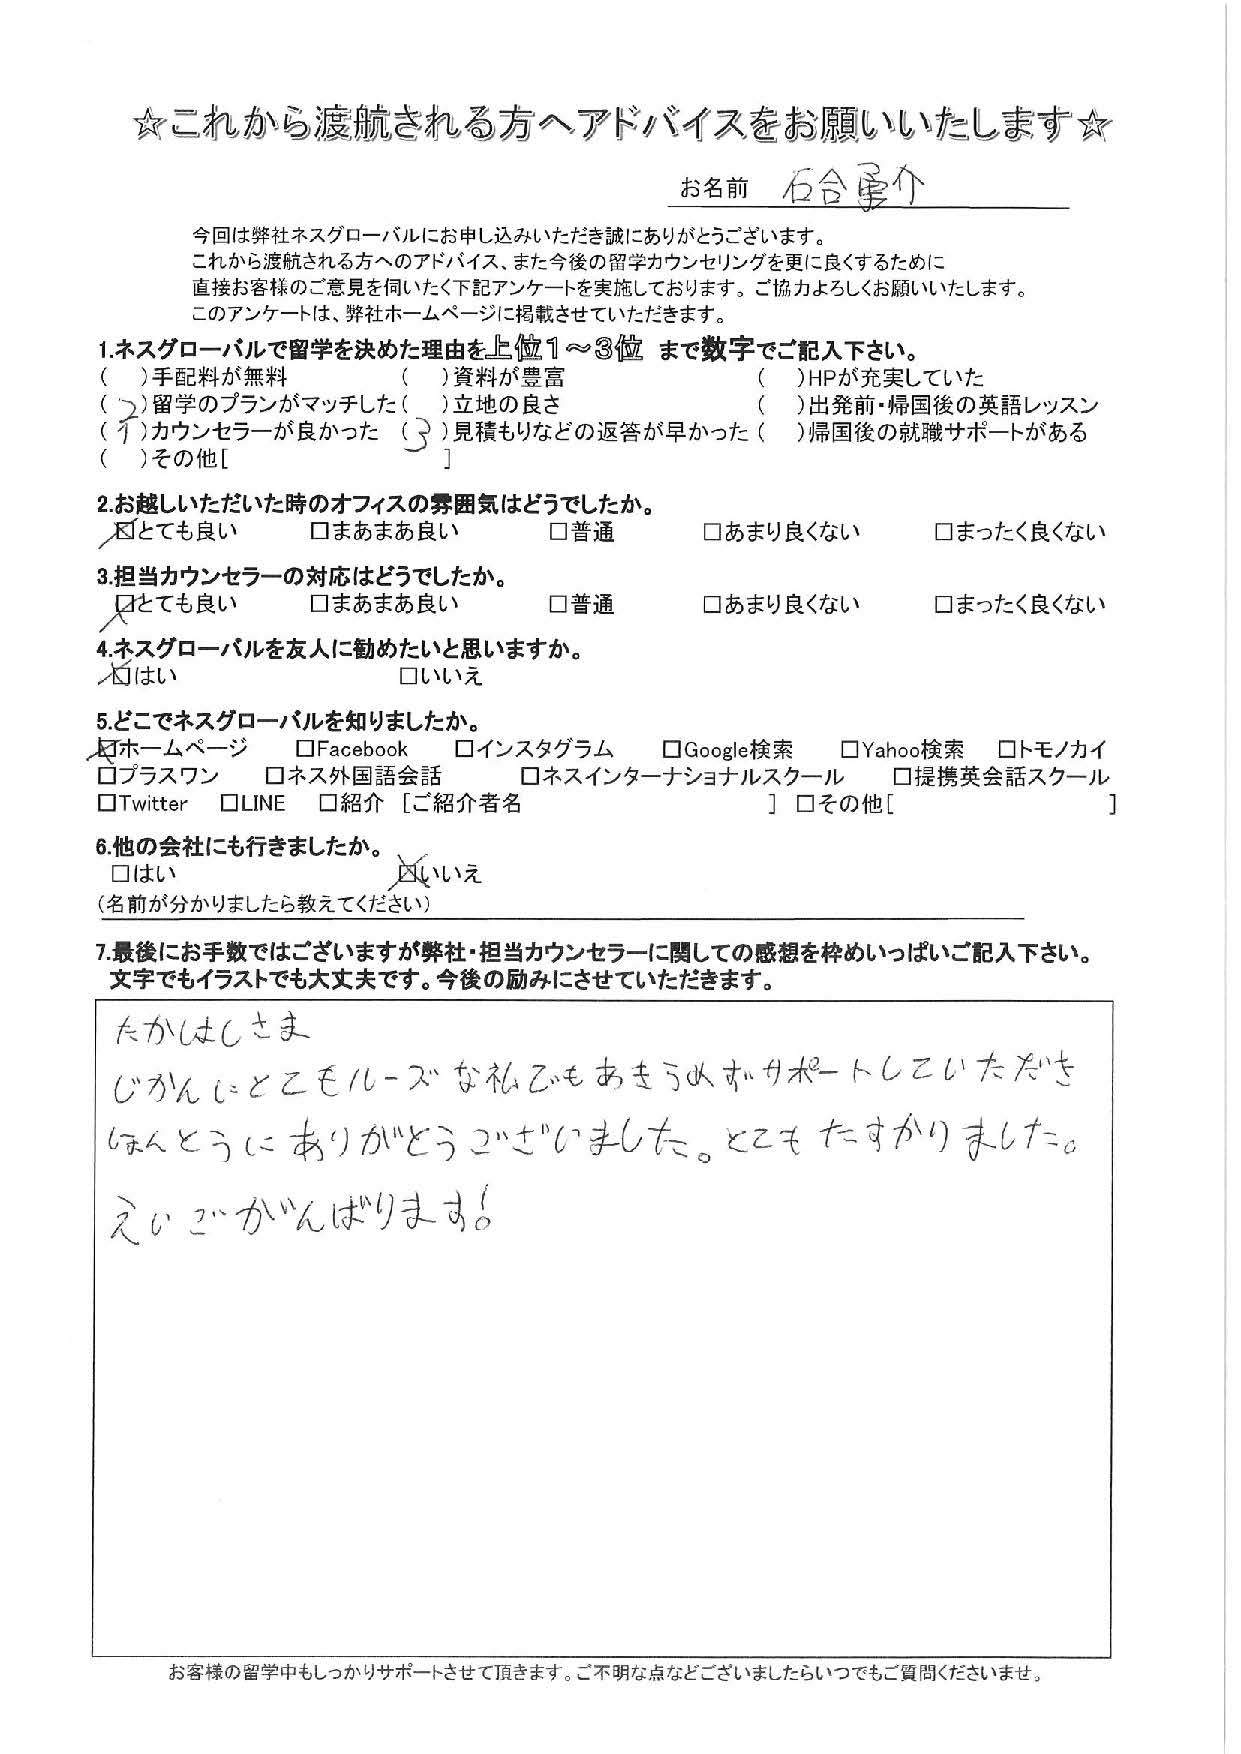 ☆これから渡航される方へアドバイスをお願いいたします☆
お名前 石合勇介
今回は弊社ネスグローバルにお申し込みいただき誠にありがとうございます。
これから渡航される方へのアドバイス、また今後の留学カウンセリングを更に良くするために
直接お客様のご意見を伺いたく下記アンケートを実施しております。ご協力よろしくお願いいたします。
このアンケートは、弊社ホームページに掲載させていただきます。
1.ネスグローバルで留学を決めた理由を上位1～3位 まで数字でご記入下さい。
( )手配料が無料 ( )資料が豊富 ( )HPが充実していた
(2)留学のプランがマッチした( )立地の良さ ( )出発前・帰国後の英語レッスン
(1)カウンセラーが良かった (3)見積もりなどの返答が早かった ( )帰国後の就職サポートがある
( )その他[ ]
2.お越しいただいた時のオフィスの雰囲気はどうでしたか。
☒とても良い □まあまあ良い □普通 □あまり良くない □まったく良くない
3.担当カウンセラーの対応はどうでしたか。
☒とても良い □まあまあ良い □普通 □あまり良くない □まったく良くない
4.ネスグローバルを友人に勧めたいと思いますか。
☒はい □いいえ
5.どこでネスグローバルを知りましたか。
☒ホームページ □Facebook □インスタグラム □Google検索 □Yahoo検索 □トモノカイ
□プラスワン □ネス外国語会話 □ネスインターナショナルスクール □提携英会話スクール
□Twitter □LINE □紹介 [ご紹介者名 ] □その他[ ]
6.他の会社にも行きましたか。
□はい ☒いいえ
(名前が分かりましたら教えてください)
7.最後にお手数ではございますが弊社・担当カウンセラーに関しての感想を枠めいっぱいご記入下さい。
文字でもイラストでも大丈夫です。今後の励みにさせていただきます。
たかはしさま
じかんにとてもルーズな私でもあきらめずサポートしていただき
ほんとうにありがとうございました。とてもたすかりました。
えいごがんばります!
お客様の留学中もしっかりサポートさせて頂きます。ご不明な点などございましたらいつでもご質問くださいませ。